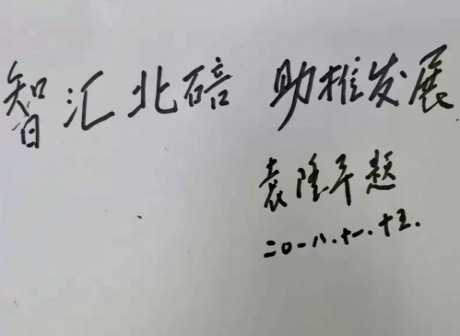 智汇北碚 助推发展
袁隆平题
二0一八.十一.十三.